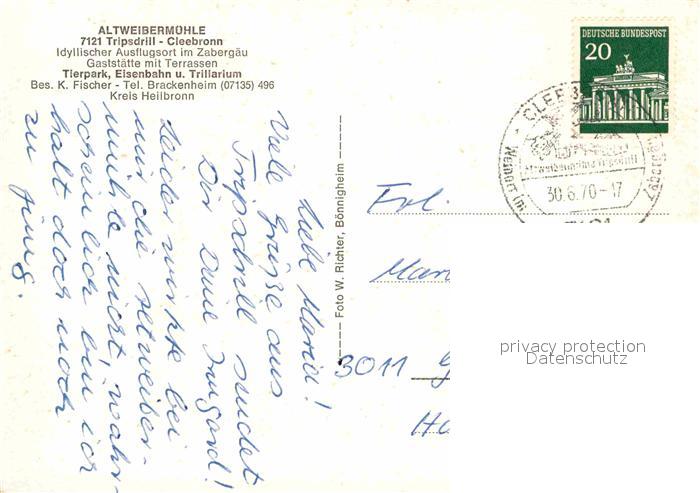 ALTWEIBERMÜHLE
7121 Tripsdrill - Cleebronn
Idyllischer Ausflugsort im Zabergäu
Gaststätte mit Terrassen
Tierpark, Eisenbahn u. Trillarium
Bes. K. Fischer - Tel. Brackenheim (07135) 496
Kreis Heilbronn
Liebe Maria!
Viele Grüße aus
Tripsdrill sendet
Dir Deine Irmgard!
Leider wirkte bei
mir die Altweiber-
mühle nicht, wahr-
scheinlich bin ich
halt doch noch
zu jung.
Foto W. Richter, Bönnigheim
DEUTSCHE BUNDESPOST
20
CLEEB
Altweibermühle Tripsdrill
30.6.70-17
7121
Frl.
Mari
3011
privacy protection
Datenschutz